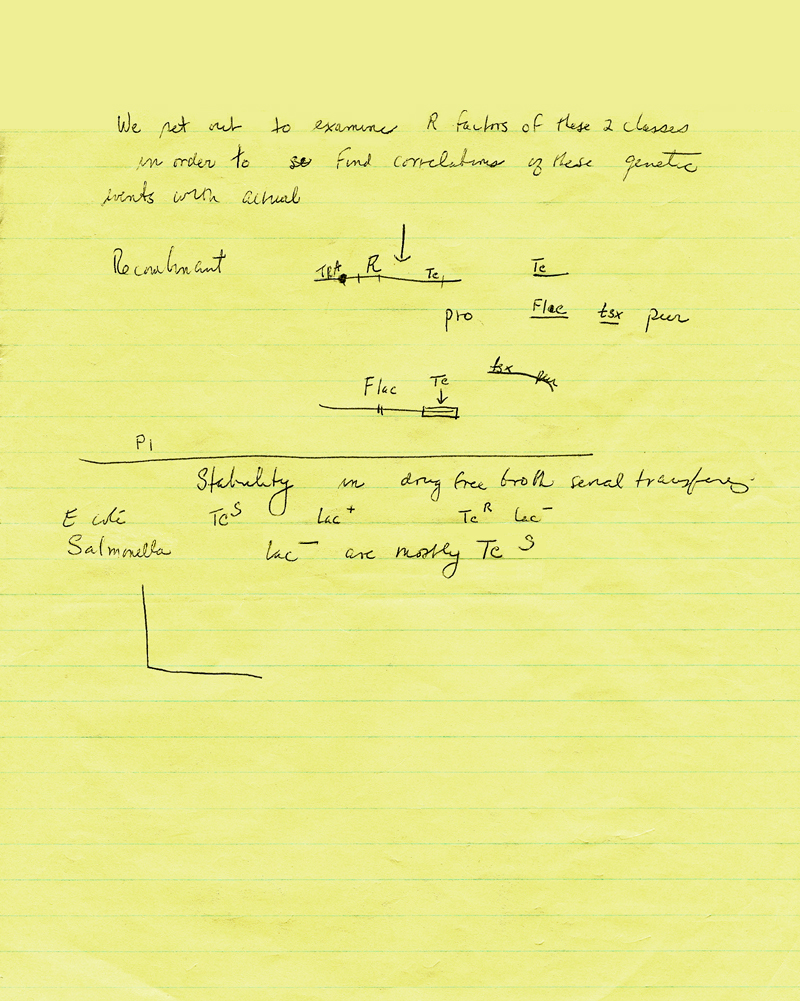 We set out to examine R factors of these 2 classes
in order to se find correlations of these genetic
events with actual
Recombinant TRA R Tc Tc
pro Flac tsx pur
Flac Tc tsx pur
P1
Stability in drug free broth serial transfers.
E coli Tc S lac + Tc R lac −
Salmonella lac − are mostly Tc S